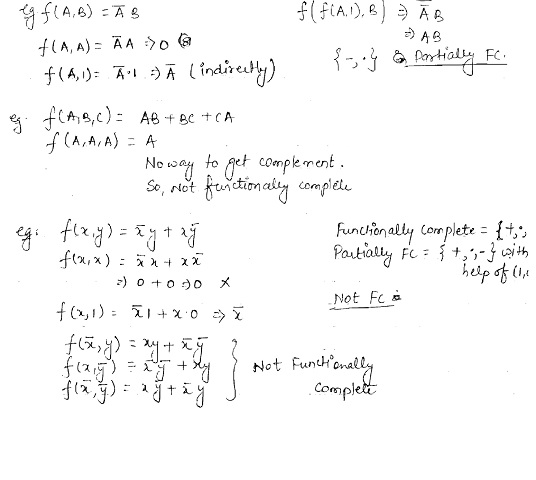 eg f(A,B) = A̅ B
f(A,A) = A̅ A ⇒ 0
f(A,1) = A̅·1 ⇒ A̅ (indirectly)
f(f(A,1),B) ⇒ A̿B
⇒ AB
{-,·} Partially FC.
eg. f(A,B,C) = AB + BC + CA
f(A,A,A) = A
No way to get complement.
So, Not functionally complete
eg: f(x,y) = x̅y + xy̅
f(x,x) = x̅x + xx̅
⇒ 0 + 0 ⇒ 0 X
f(x,1) = x̅1 + x·0 ⇒ x̅
f(x̅,y) = xy + x̅y̅
f(x,y̅) = x̅y̅ + xy
f(x̅,y̅) = xy̅ + x̅y
Not Functionally
complete
Functionally complete = {+,·,
Partially FC = {+,·,-} with
help of (1,
Not FC